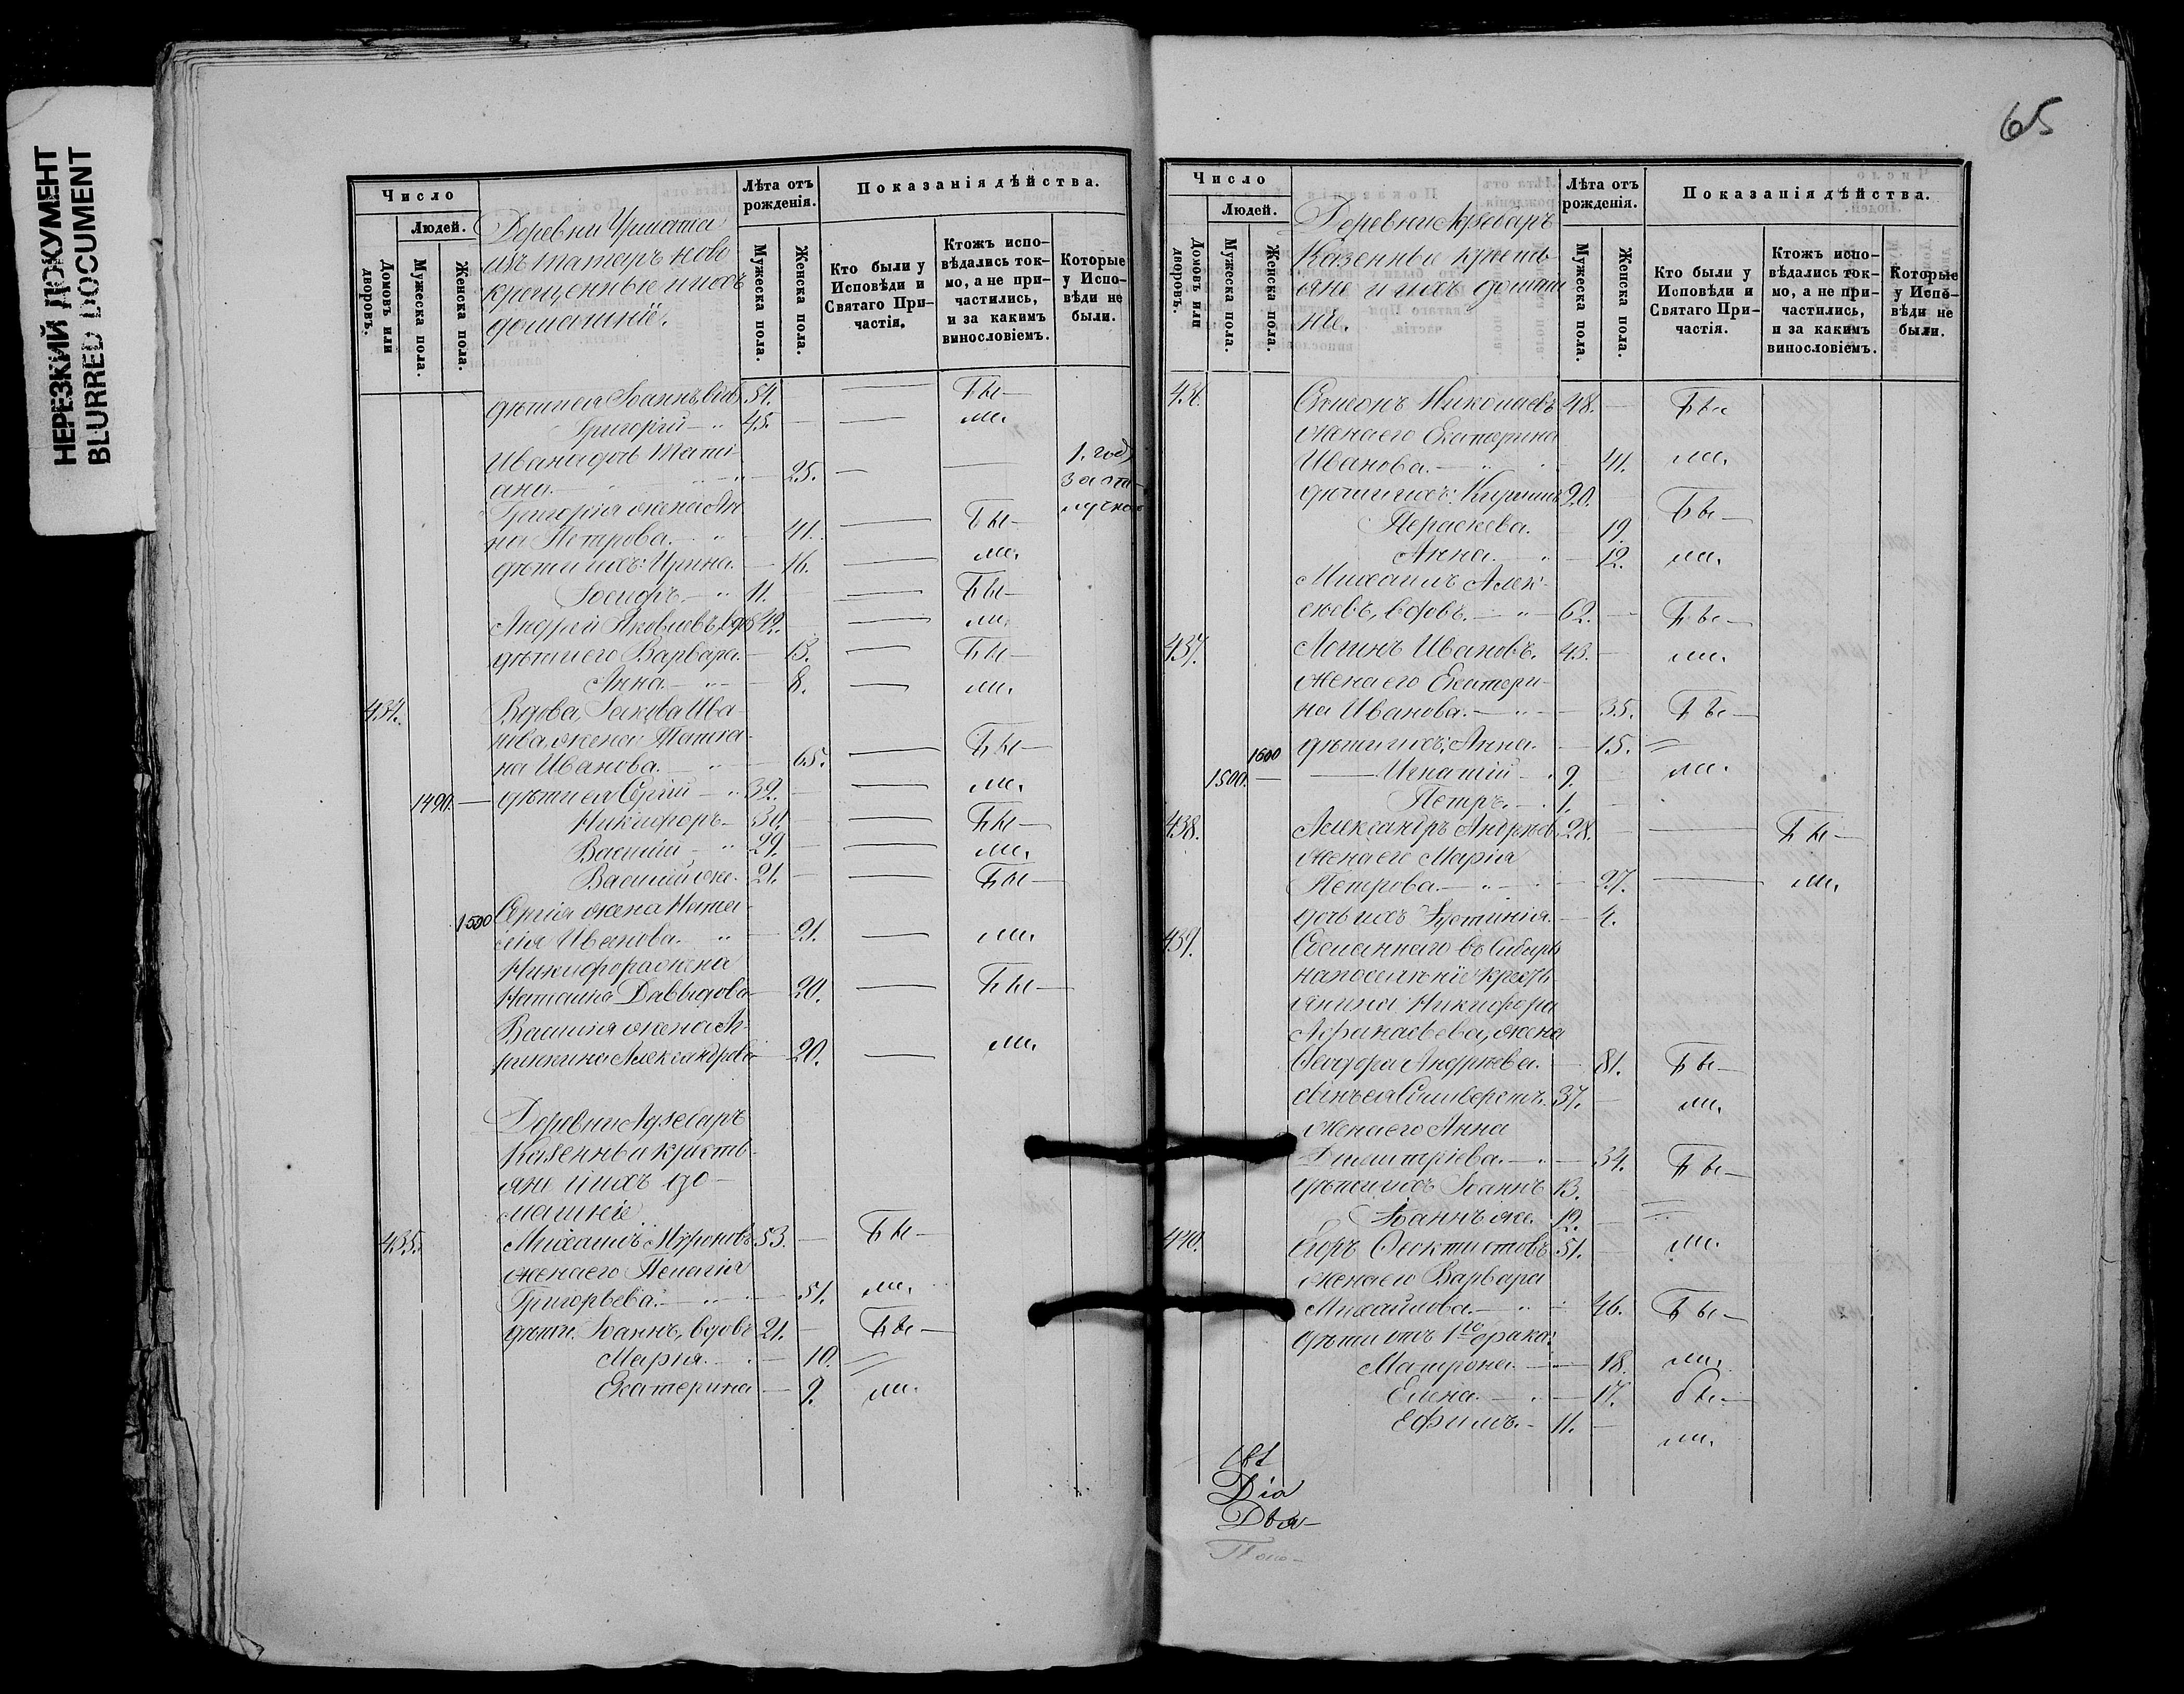 НЕРЕЗКИЙ ДОКУМЕНТ
BLURRED DOCUMENT
Число
Людей.
Домовъ или дворовъ.
Мужеска пола.
Женска пола.
Деревни
изъ татаръ ново
крещенные и ихъ
домашніе.
Лѣта отъ рожденія.
Мужеска пола.
Женска пола.
Показанія дѣйства.
Кто были у Исповѣди и Святаго Причастія.
Ктожъ исповѣдались токмо, а не причастились, и за какимъ винословіемъ.
Которые у Исповѣди не были.
дѣти ея Іоаннъ, вдов. 54. — Бы—
Григорій — 45. — — ли.
Ивана дочь Тати-
ана. — 25. — — 1. годъ
за от-
Григорія жена Ан-
на Петрова. — 41. — Бы—
дѣти ихъ: Ирина. — 16. — ли.
Іосифъ — 11. — Бы—
Андрей Яковлевъ, вдов 42. — ли.
дѣти его Варвара. — 13. — Бы—
Анна — 8. — ли.
434. Вдова, Іакова Ива-
нова жена Татіа-
на Иванова. — 65. — Бы—
1490. — дѣти ея Сергій — 32. — — ли.
Никифоръ — 30. — — Бы—
Василій — 29. — — ли.
Василій же. 21. — — Бы—
1500 Сергія жена Ната-
лія Иванова. — 21. — ли.
Никифора жена
Наталія Давыдова — 20. — Бы—
Василія жена
Александрова — 20. — ли.
Деревни
Казенные кресть-
яне и ихъ до-
машніе
435. Михаилъ Мѵроновъ 53. — Бы—
жена его Пелагія
Григорьева. — 51. ли.
дѣти: Іоаннъ, вдовъ 21. — Бы—
Марія — 10.
Екатерина — 9. ли.
65
Число
Людей.
Домовъ или дворовъ.
Мужеска пола.
Женска пола.
Деревни
Казенные кресть-
яне и ихъ домаш-
ніе.
Лѣта отъ рожденія.
Мужеска пола.
Женска пола.
Показанія дѣйства.
Кто были у Исповѣди и Святаго Причастія.
Ктожъ исповѣдались токмо, а не причастились, и за какимъ винословіемъ.
Которые у Исповѣди не были.
436. Симеонъ Николаевъ 48. — Бы
жена его Екатерина
Иванова. — 41. ли.
дѣти ихъ: Кириллъ 20. — Бы—
Параскева. — 19.
Анна. — 12. ли.
Михаилъ Алек-
сѣевъ, вдовъ. — 62. — Бы—
437. Логинъ Ивановъ. 43. — ли.
жена его Екатери-
на Иванова. — 35. Бы—
1600 дѣти ихъ: Анна. — 15.
1500. — Игнатій — 9. — ли.
Петръ. — 1.
438. Александръ Андреевъ 28. — — Бы—
жена его Марія
Петрова. — 27. — ли.
дочь ихъ Іустинія. — 4.
439. Сосланнаго въ Сибирь
на поселеніе кресть-
янина Никифора
Афанасьева, жена
Ѳеодора Андреева. — 81. Бы—
сынъ ея Сильвестръ. 37. — ли.
жена его Анна
Димитріева. — 34. Бы—
дѣти ихъ Іоаннъ 13.
Іоаннъ же. 12. —
440. Егоръ Ѳеоктистовъ 51. — ли.
жена его Варвара
Михайлова. — 46. Бы—
дѣти отъ 1го брака:
Матрона. — 18. ли.
Елена. — 17. бы.—
Ефимъ. — 11. — ли.